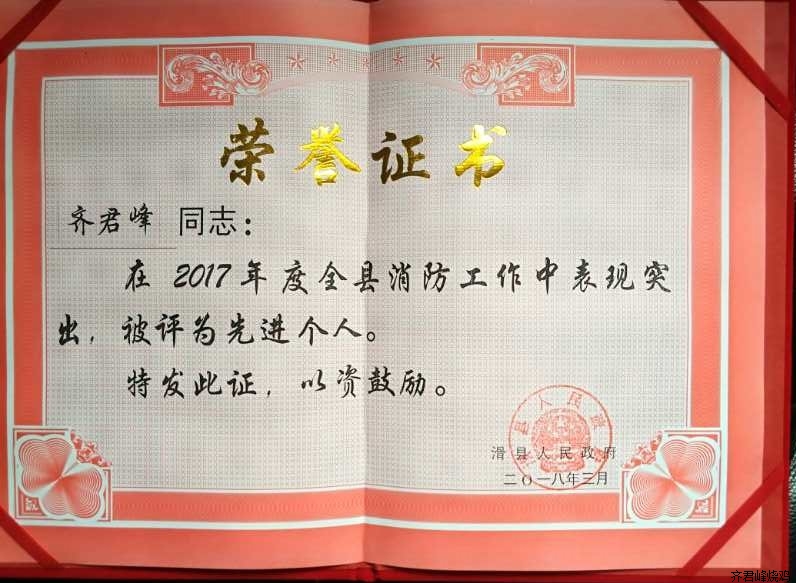 荣誉证书
齐君峰 同志：
在 2017 年度全县消防工作中表现突
出，被评为先进个人。
特发此证，以资鼓励。
滑县人民政府
二〇一八年三月
齐君峰烧鸡